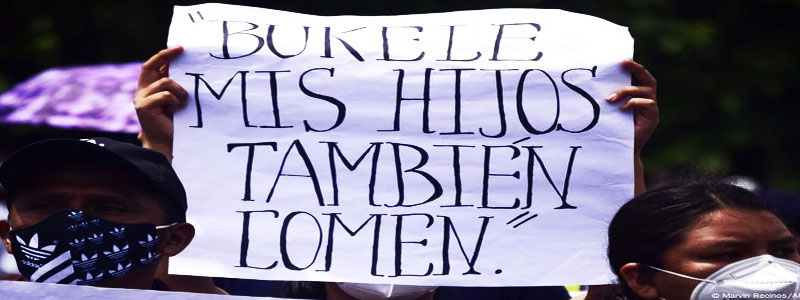 "BUKELE
MIS HIJOS
TAMBIÉN
COMEN."
adidas
© Marvin Recinos/A